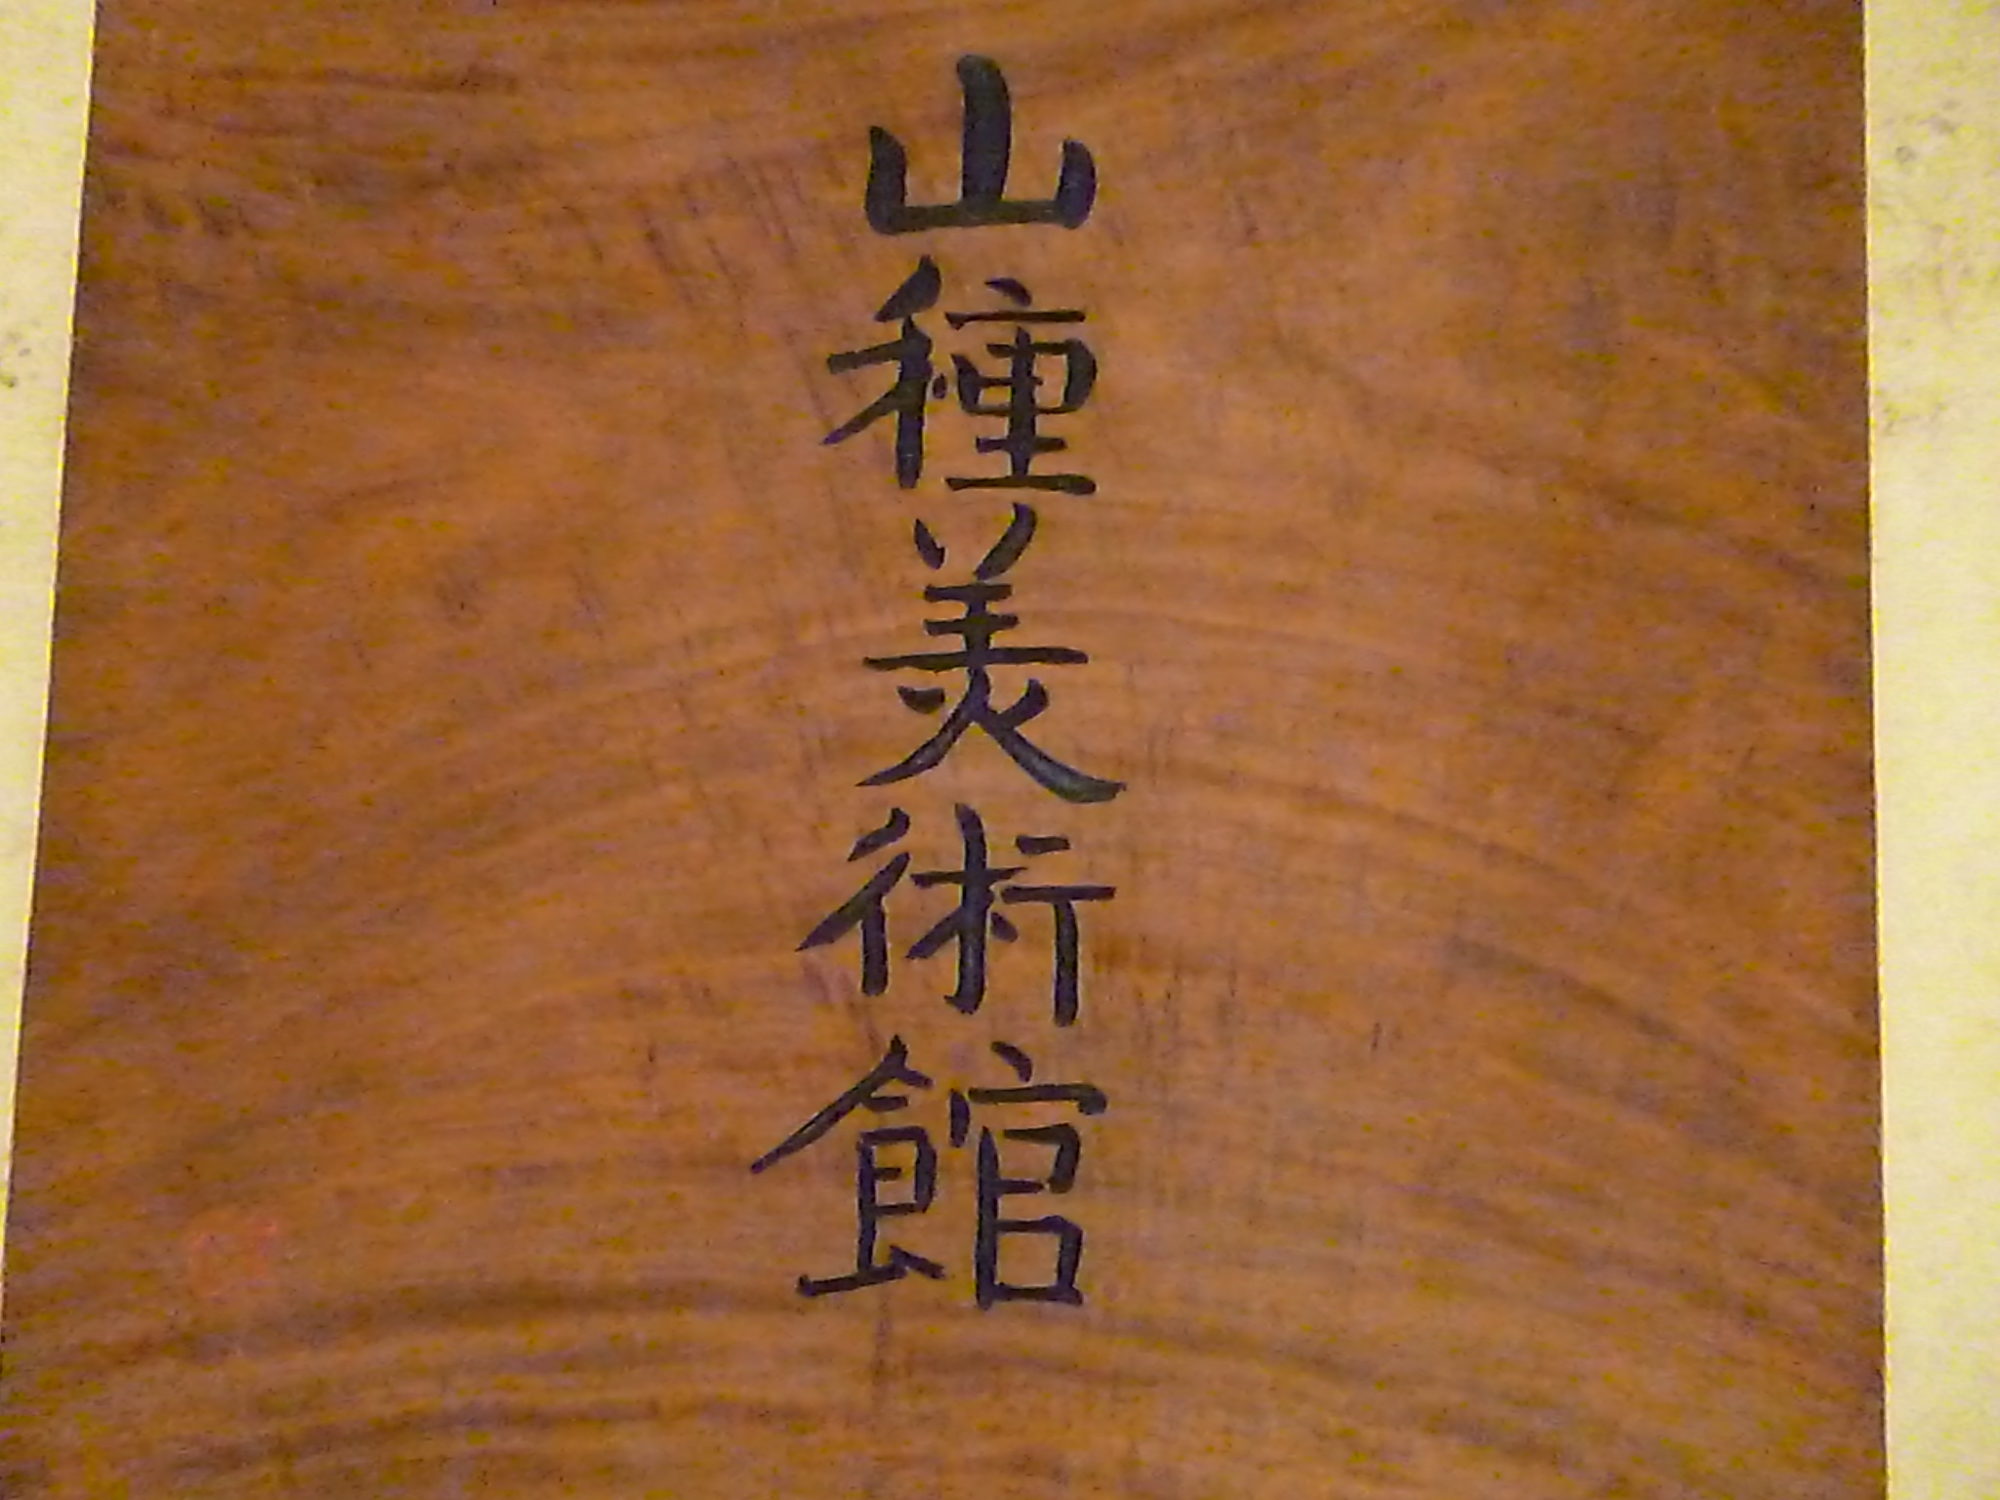 山種美術館